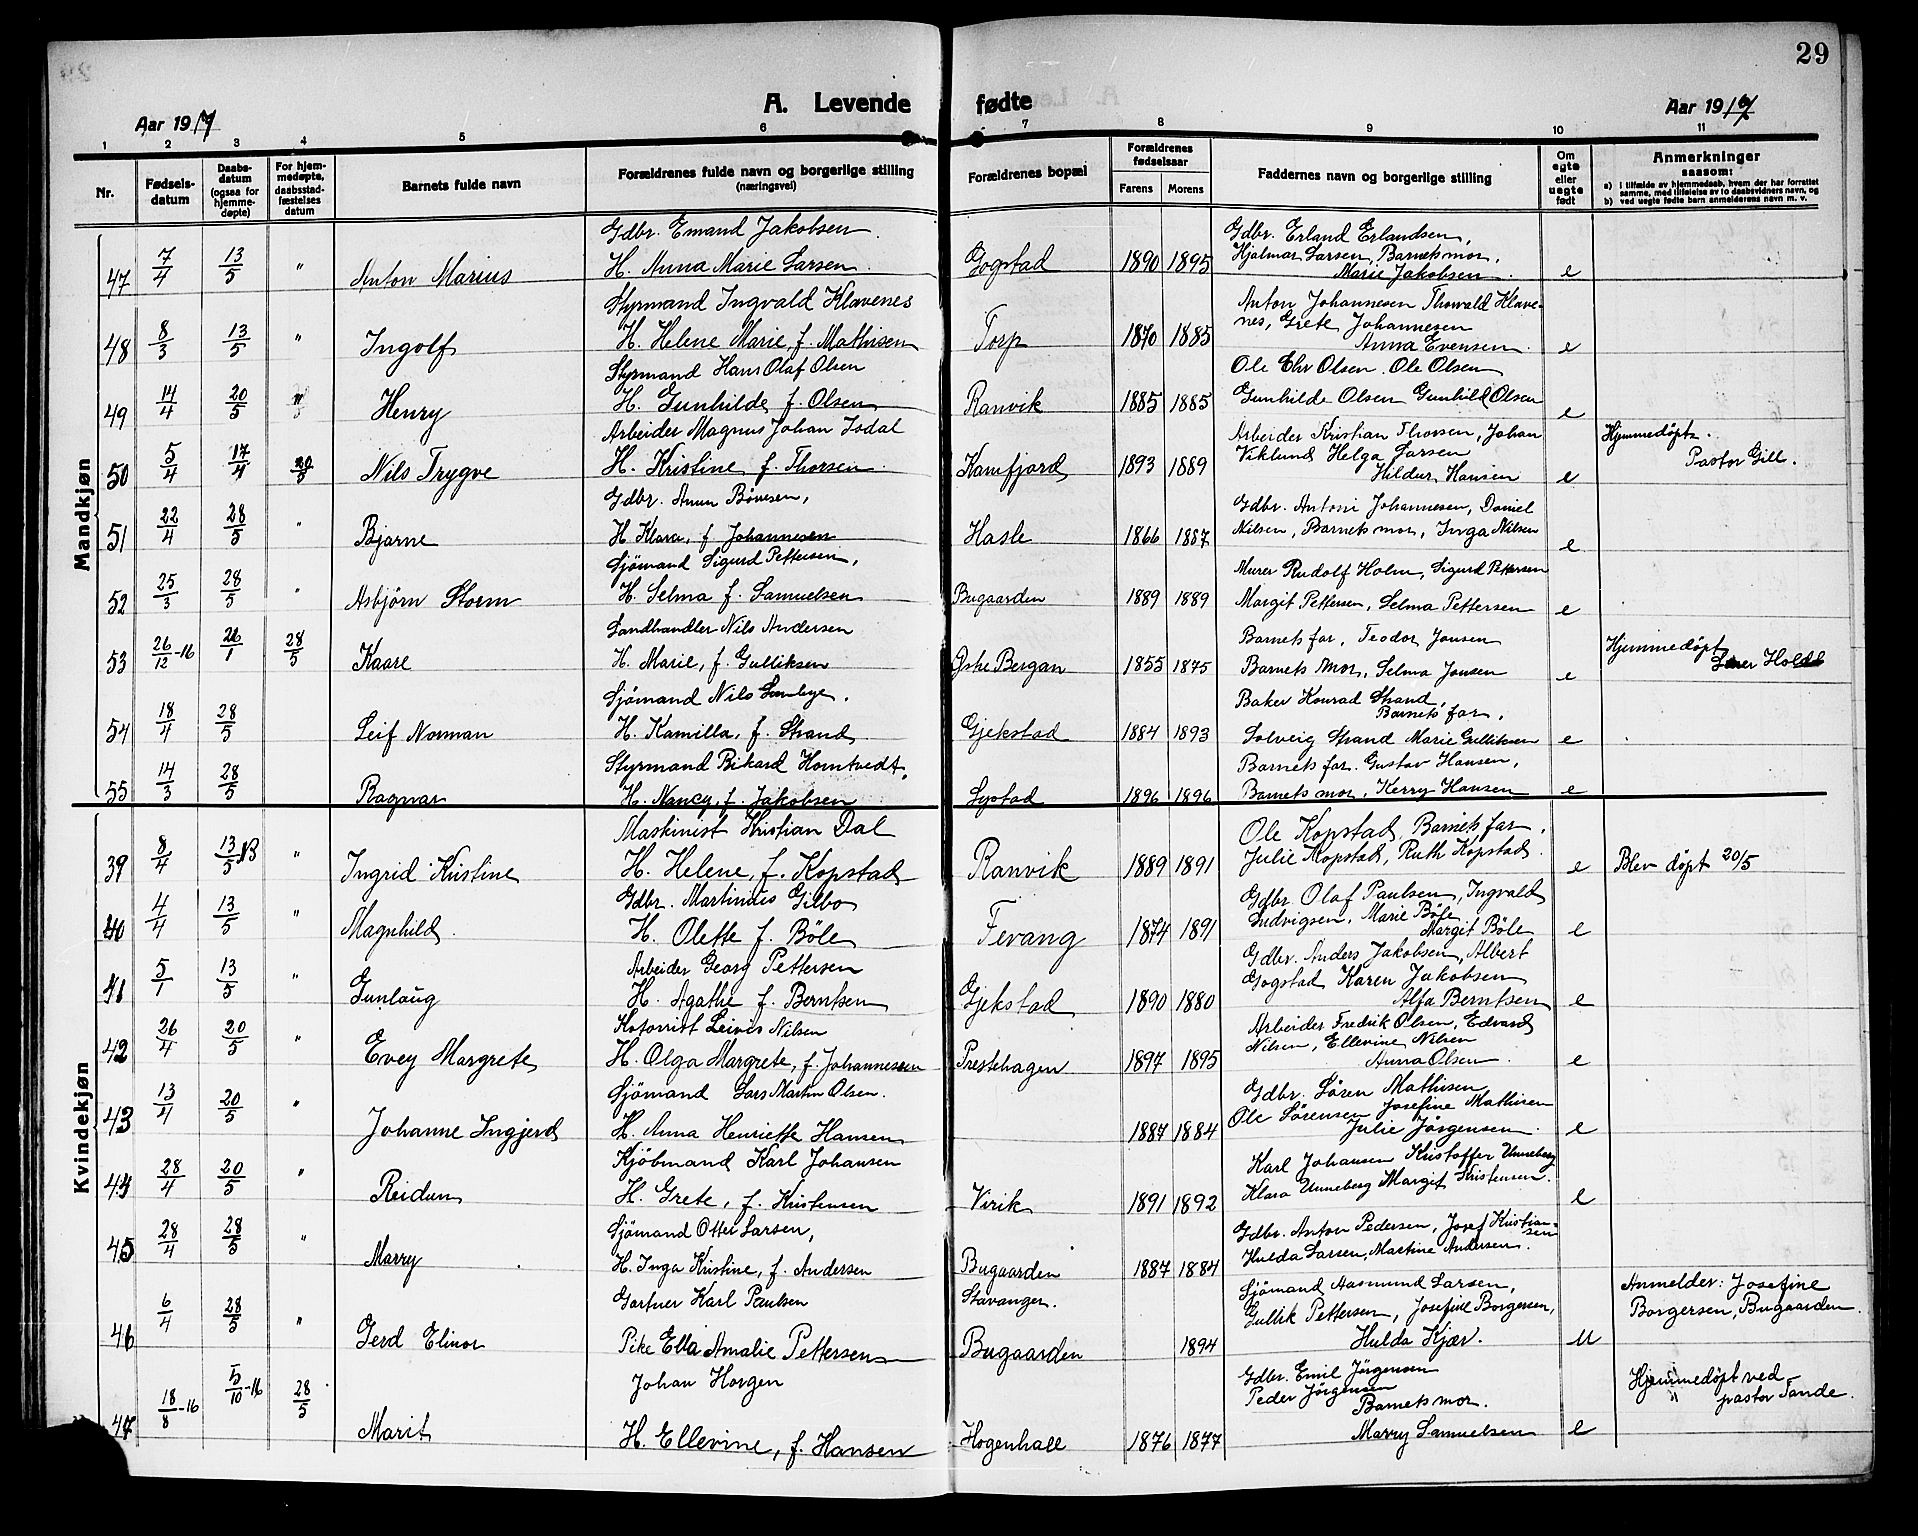 29
A. Levende fødte
Aar 1917
Aar 1917
1 2 3 4 5 6 7 8 9 10 11
Nr.
Fødsels-datum
Daabs-datum (ogsaa for hjemme-døpte)
For hjem-medøpte, daabsstad-fæstelses datum
Barnets fulde navn
Forældrenes fulde navn og borgerlige stilling (næringsvei)
Forældrenes bopæl
Forældrenes fødselsaar
Farens
Morens
Faddernes navn og borgerlige stilling
Om egte eller uegte født
Anmerkninger saasom:
a) i tilfælde av hjemmedaab, hvem der har forrettet samme, med tilføielse av to daabsvidners navn, og
b) ved uegte fødte barn anmelderens navn m. v.
Mandkjøn
Gdbr. Emand Jakobsen Gdbr. Erland Erlandsen,
47 7/4 13/5 " Anton Marius H. Anna Marie Larsen Gogstad 1890 1895 Hjalmar Larsen, Barnets mor, e
Marie Jakobsen
Styrmand Ingvald Klavenes Anton Johannesen Thorvald Klave-
48 8/3 13/5 " Ingolf H. Helene Marie, f. Mathisen Torp 1870 1885 nes, Grete Johannesen e
Anna Evensen
Styrmand Hans Olaf Olsen Ole Chr Olsen. Ole Olsen
49 14/4 20/5 " Henry H. Gunhilde f. Olsen Ranvik 1885 1885 Gunhilde Olsen Gunhild Olsen e
Arbeider Magnus Johan Isdal Arbeider Kristian Thorsen, Johan Hjemmedøpt.
50 5/4 17/4 20/5 Nils Trygve H. Kristine f. Thorsen Kamfjord 1893 1889 Viklund Helga Larsen e Pastor Gill.
Hildur Hansen
Gdbr. Anun Bøvesen, Gdbr. Anton Johannesen, Daniel
51 22/4 28/5 " Bjarne H. Klara, f. Johannesen Hasle 1866 1887 Nilsen, Barnets mor, Inga Nilsen e
Sjömand Sigurd Pettersen, Murer Rudolf Holm, Sigurd Pettersen
52 25/3 28/5 " Asbjørn Storm H. Selma f. Samuelsen Bugaarden 1889 1889 Margit Pettersen, Selma Pettersen e
Landhandler Nils Andersen Barnets far, Teodor Jansen Hjemmedøpt
53 26/12-16 26/1 28/5 Kaare H. Marie, f. Gulliksen Østre Bergan 1855 1875 Barnets mor, Selma Jansen e Holdt
Sjömand Nils Baker Konrad Strand,
Barnets far,
54 18/4 28/5 Leif Norman H. Kamilla, f. Strand Gjekstad 1884 1893 Solveig Strand Marie Gulliksen e
Styrmand Rikard Homtvedt, Barnets far. Gustav Hansen,
55 14/3 28/5 Ragnar H. Nancy, f. Jakobsen Lystad 1896 1896 Barnets mor, Kerry Hansen e
Kvindekjøn
Maskinist Kristian Dal Ole Kopstad, Barnets far,
39 8/4 13/5 NB " Ingrid Kristine H. Helene, f. Kopstad Ranvik 1889 1891 Julie Kopstad, Ruth Kopstad. e Blev døpt 20/5
Gdbr. Martinius Gilbo Gdbr. Olaf Paulsen, Ingvald
40 4/4 13/5 " Magnhild H. Olette f. Böle Fevang 1874 1891 Ludvigsen, Marie Böle e
Margit Böle
Arbeider Georg Pettersen Gdbr. Anders Jakobsen, Albert
41 5/1 13/5 " Gunlaug H. Agathe f. Berntsen Gjekstad 1890 1880 Gogstad Karen Jakobsen e
Alfa Berntsen
Leivis Nilsen Arbeider Fredrik Olsen, Edvard
42 26/4 20/5 " Evey Margrete H. Olga Margrete, f. Johannessen Prestehagen 1897 1895 Nilsen, Ellevine Nilsen e
Anna Olsen
Sjömand Lars Martin Olsen. Gdbr. Sören Mathisen,
43 13/4 20/5 " Johanne Ingjerd H. Anna Henriette Hansen 1887 1884 Ole Sörensen Josefine Mathisen e
Julie Jörgensen
Kjöbmand Karl Johansen Karl Johansen Kristoffer Unneberg
44 28/4 20/5 " Reidun H. Grete, f. Kristensen Virik 1891 1892 Klara Unneberg Margit Kristensen e
Sjömand Otter Larsen, Gdbr. Anton Pedersen, Josef Kristian-
sen
45 28/4 28/5 " Marry H. Inga Kristine, f. Andersen Bugaarden 1887 1884 Hulda Larsen, Martine Andersen.
Gartner Karl Paulsen Stavanger. Sjömand Aasmund Larsen, Anmelder: Josefine
Gullik Pettersen, Josefine Borgersen, Borgersen, Bugaarden.
46 6/4 28/5 " Gerd Elinor Pike Ella Amalie Pettersen Bugaarden 1894 Hulda Kjær. u
Johan Horgen Gdbr. Emil Jörgensen Hjemmedøpt ved
Peder Jörgensen pastor Tande.
Barnets mor.
47 18/8-16 5/10-16 28/5 Marit H. Ellevine, f. Hansen Hogenhall 1876 1877 Marry Samuelsen e